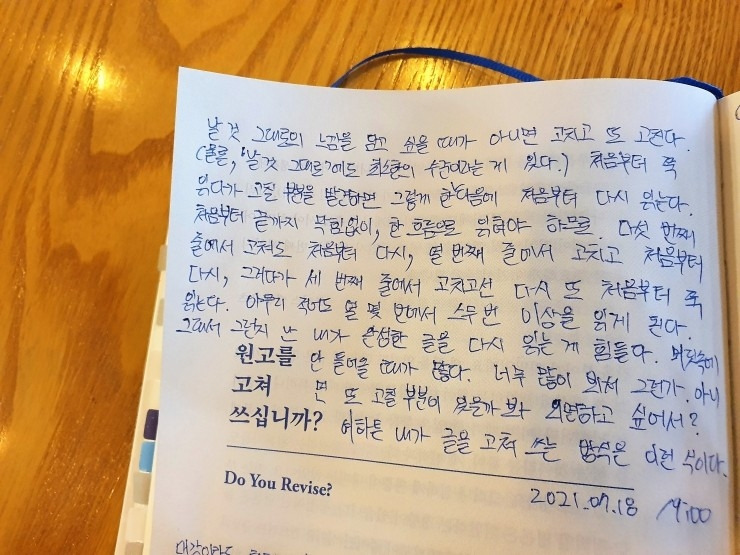 날 것 그대로의 느낌을 담고 싶을 때가 아니면 고치고 또 고친다.
(물론, '날 것 그대로'에도 최소한의 수준이라는 게 있다.) 처음부터 쭉
읽다가 고칠 부분을 발견하면 그렇게 한 다음에 처음부터 다시 읽는다.
처음부터 끝까지 막힘없이, 한 흐름으로 읽혀야 하므로. 다섯 번째
줄에서 고쳐도 처음부터 다시, 열 번째 줄에서 고치고 처음부터
다시, 그러다가 세 번째 줄에서 고치고선 다시 또 처음부터 쭉
읽는다. 아무리 적어도 열 몇 번에서 스무 번 이상을 읽게 된다.
그래서 그런지 난 내가 완성한 글을 다시 읽는 게 힘들다. 머릿속에
원고를 안 들어올 때가 많다. 너무 많이 봐서 그런가. 아니
고쳐 면 또 고칠 부분이 있을까 봐 외면하고 싶어서?
쓰십니까? 여하튼 내가 글을 고쳐 쓰는 방식은 이런 식이다.
Do You Revise?
2021.07.18